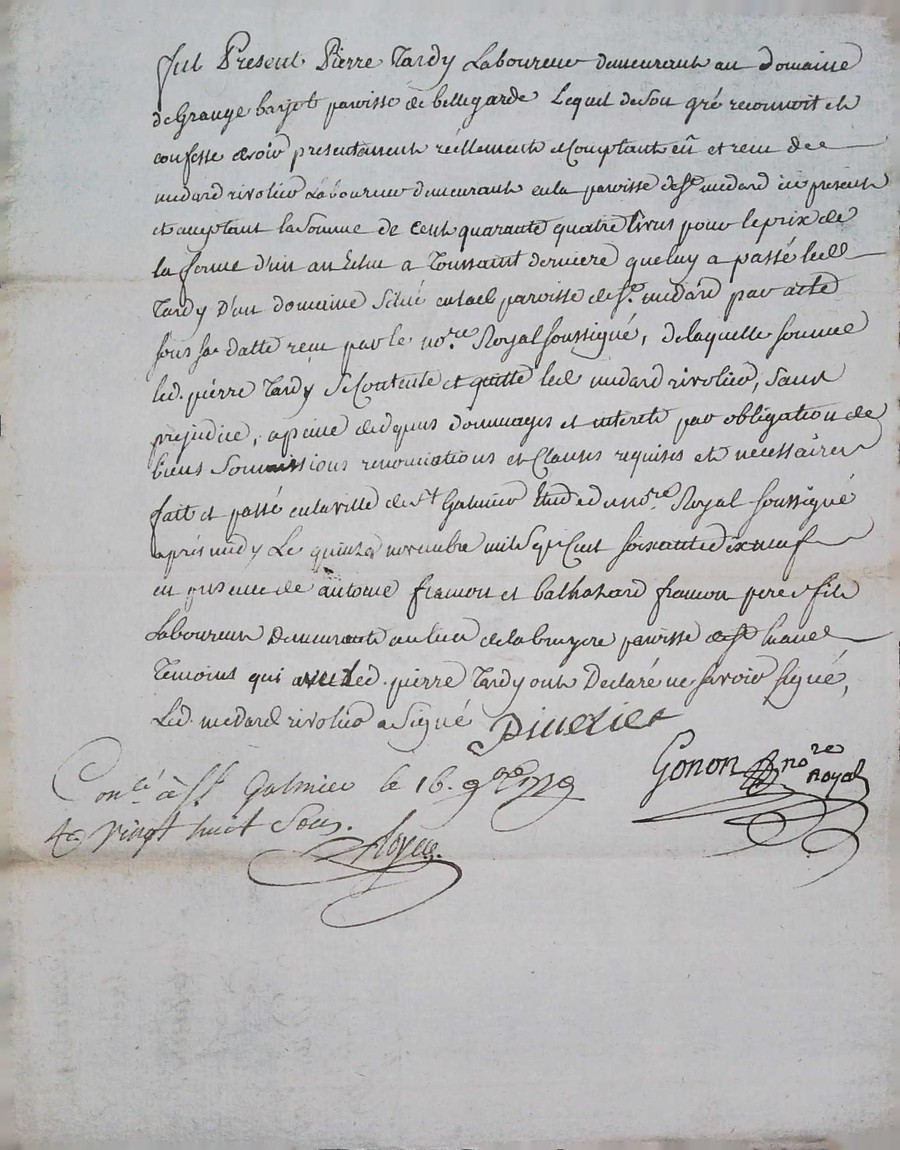 fut Present Pierre Tardy Laboureur demeurant au domaine
de Grange barjot paroisse de bellegarde Lequel de son gré reconnoit et
confesse avoir presentement réellement et Comptant eû et receu de
medard rivolier Laboureur demeurant en la paroisse de St medard ici present
et acceptant la Somme de Cent quarante quatre livres pour le prix de
la ferme d'un an Echu a Toussaint derniere que luy a passé led
Tardy D'un domaine Situé en lad paroisse de St medard par acte
sous sa datte receu par le nore. Royal soussigné, de laquelle somme
led. pierre Tardy Se Contente et quitte led medard rivolier, Sans
prejudice, a peine de dommages et interets par obligation de
biens Soumissions renonciations et Clauses requises et necessaires
fait et passé en la ville de St Galmier Etude du nore. Royal soussigné
après midy Le quinze novembre mil Sept Cent soixante dix neuf
en presence de antoine framon et balthazard framon pere et fils
Laboureurs Demeurants au lieu de la bruyere paroisse de St
Temoins qui avec Led. pierre Tardy ont Declaré ne savoir signé,
Led. medard rivolier a Signé
Gonon nore Royal
Conlé à St Galmier le 16. 9bre 1779
vingt huit Sous.